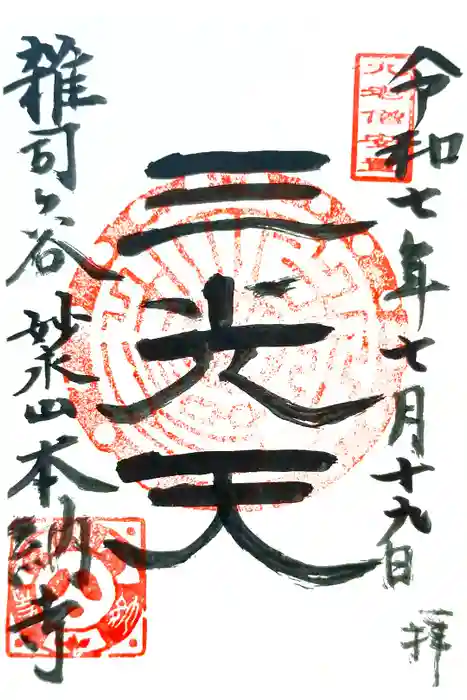 令和七年七月十九日
一拝
三光天
雑司ヶ谷 妙永山本納寺